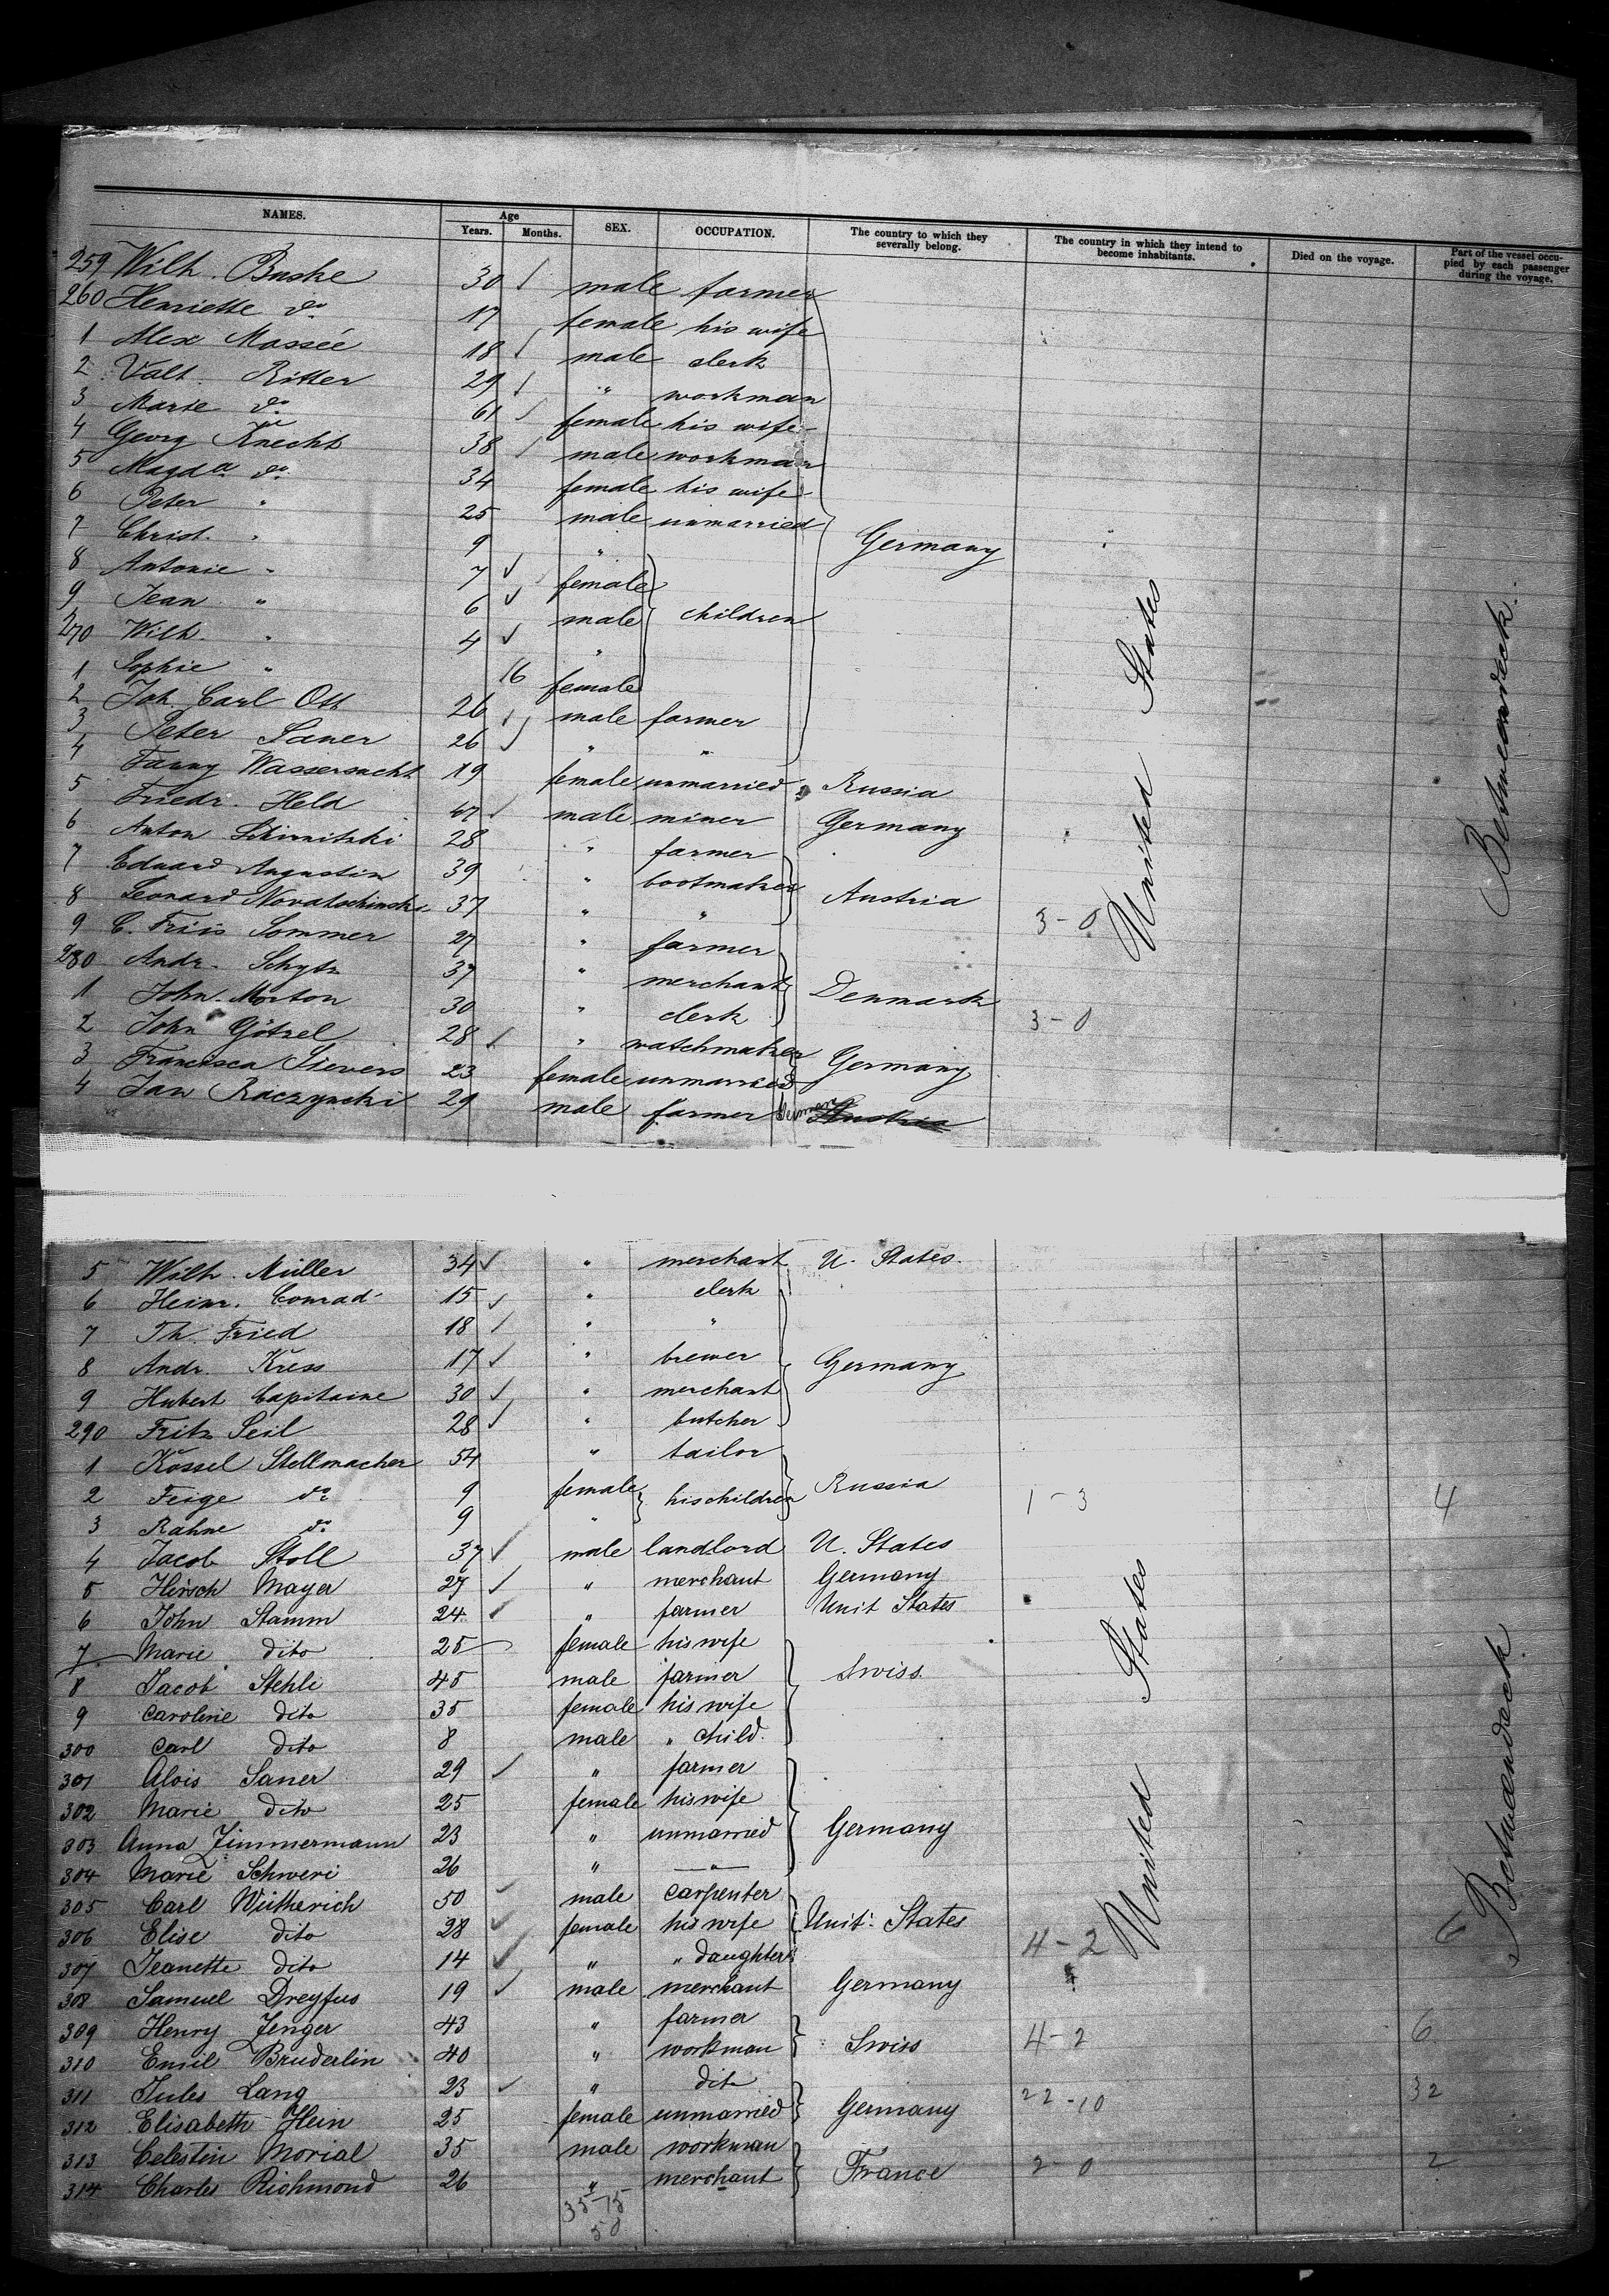 NAMES. Age SEX. OCCUPATION. The country to which they severally belong. The country in which they intend to become inhabitants. Died on the voyage. Part of the vessel occupied by each passenger during the voyage.
Years. Months.
259 Wilh. Buske 30 male farmer
260 Henriette do 17 female his wife
1 Alex Massée 18 male clerk
2 Valt. Ritter 29 " workman
3 Marie do 61 female his wife
4 Georg Knecht 38 male workman
5 Magda do 34 female his wife
6 Peter " 25 male unmarried
7 Christ. " 9 " Germany
8 Antonie " 7 female
9 Jean " 6 male children
270 Wilh " 4 "
1 Sophie " 16 female
2 Joh. Carl Ott 26 male farmer
3 Peter Saner 26 " "
4 Fanny Wassersucht 19 female unmarried Russia
5 Friedr. Held 47 male miner Germany
6 Anton 28 " farmer
7 Eduard Augustin 39 " bootmaker Austria
8 Leonard 37 " "
9 C. Friis Sommer 27 " farmer 3-0
280 Andr. Schytz 37 " merchant Denmark
1 John Morton 30 " clerk 3-0
2 John Götzel 28 " watchmaker Germany
3 Francisca Sievers 23 female unmarried
4 Jan Raczynski 29 male farmer Germany Austria
United States
Zwischendeck
5 Wilh. Müller 34 " merchant U. States
6 Heinr. Conrad 15 " clerk
7 Th. Fried 18 " "
8 Andr. Kress 17 " brewer Germany
9 Hubert Capitaine 30 " merchant
290 Fritz Seil 28 " butcher
1 Kossel Stellmacher 54 " tailor
2 Feige do 9 female his children Russia 1-3 4
3 Rahne do 9 "
4 Jacob Stoll 37 male landlord U. States
5 Hirsch Mayer 27 " merchant Germany
6 John Stamm 24 " farmer Unit States
7 Marie dito 25 female his wife
8 Jacob Stehli 45 male farmer Swiss
9 Caroline dito 35 female his wife
300 Carl dito 8 male " child
301 Alois Saner 29 " farmer
302 Marie dito 25 female his wife
303 Anna Zimmermann 23 " unmarried Germany
304 Marie Schweri 26 " "
305 Carl Wütherich 50 male carpenter
306 Elise dito 28 female his wife Unit. States 4-2 6
307 Jeanette dito 14 " " daughter
308 Samuel Dreyfus 19 male merchant Germany
309 Henry Zenger 43 " farmer
310 Emil Bruderlin 40 " workman Swiss 4-2 6
311 Jules Lang 23 " dito
312 Elisabeth Hein 25 female unmarried Germany 22-10 32
313 Celestin Morial 35 male workman
314 Charles Richmond 26 " merchant France 2-0 2
United States
35-15
50